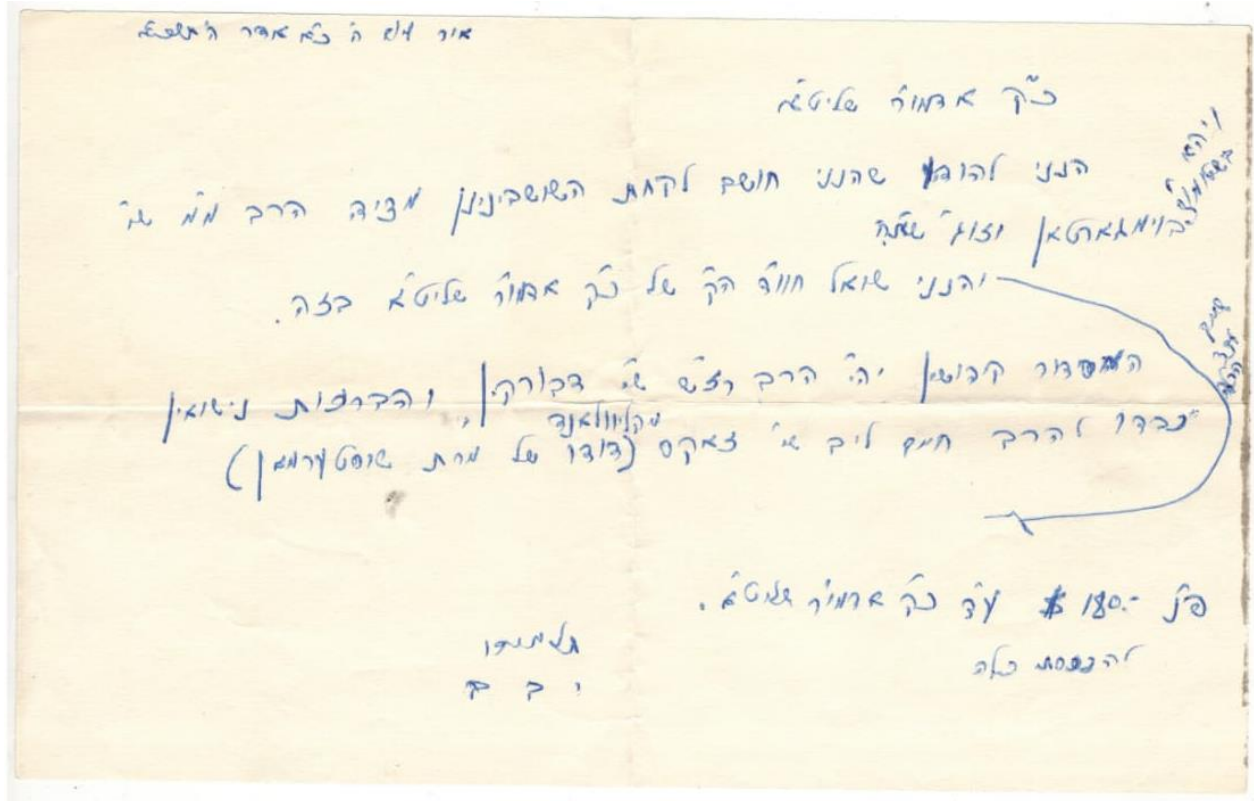 אור ליום ה' כ"א אדר ה'תשכ"א
כ"ק אדמו"ר שליט"א
הנני להודע שהנני חושב לקחת השושבינין מציה הרב מ"מ שי'
בוימגארטאן וזוג' שתח'
והנני שואל חוו"ד הק' של כ"ק אדמו"ר שליט"א בזה.
הסדור קידושין יהי' הרב רז"ש שי' דבורקין, והברכות נישואין
מקליוולאנד
יכבדו להרב חיים ליב שי' זאקס (דודו של מרת שוסטערמאן)
פ"נ -.180 $ ע"ד כ"ק אדמו"ר שליט"א.
להכנסת כלה
תלמידו
י ב ב
ויהא
בשטומו"צ